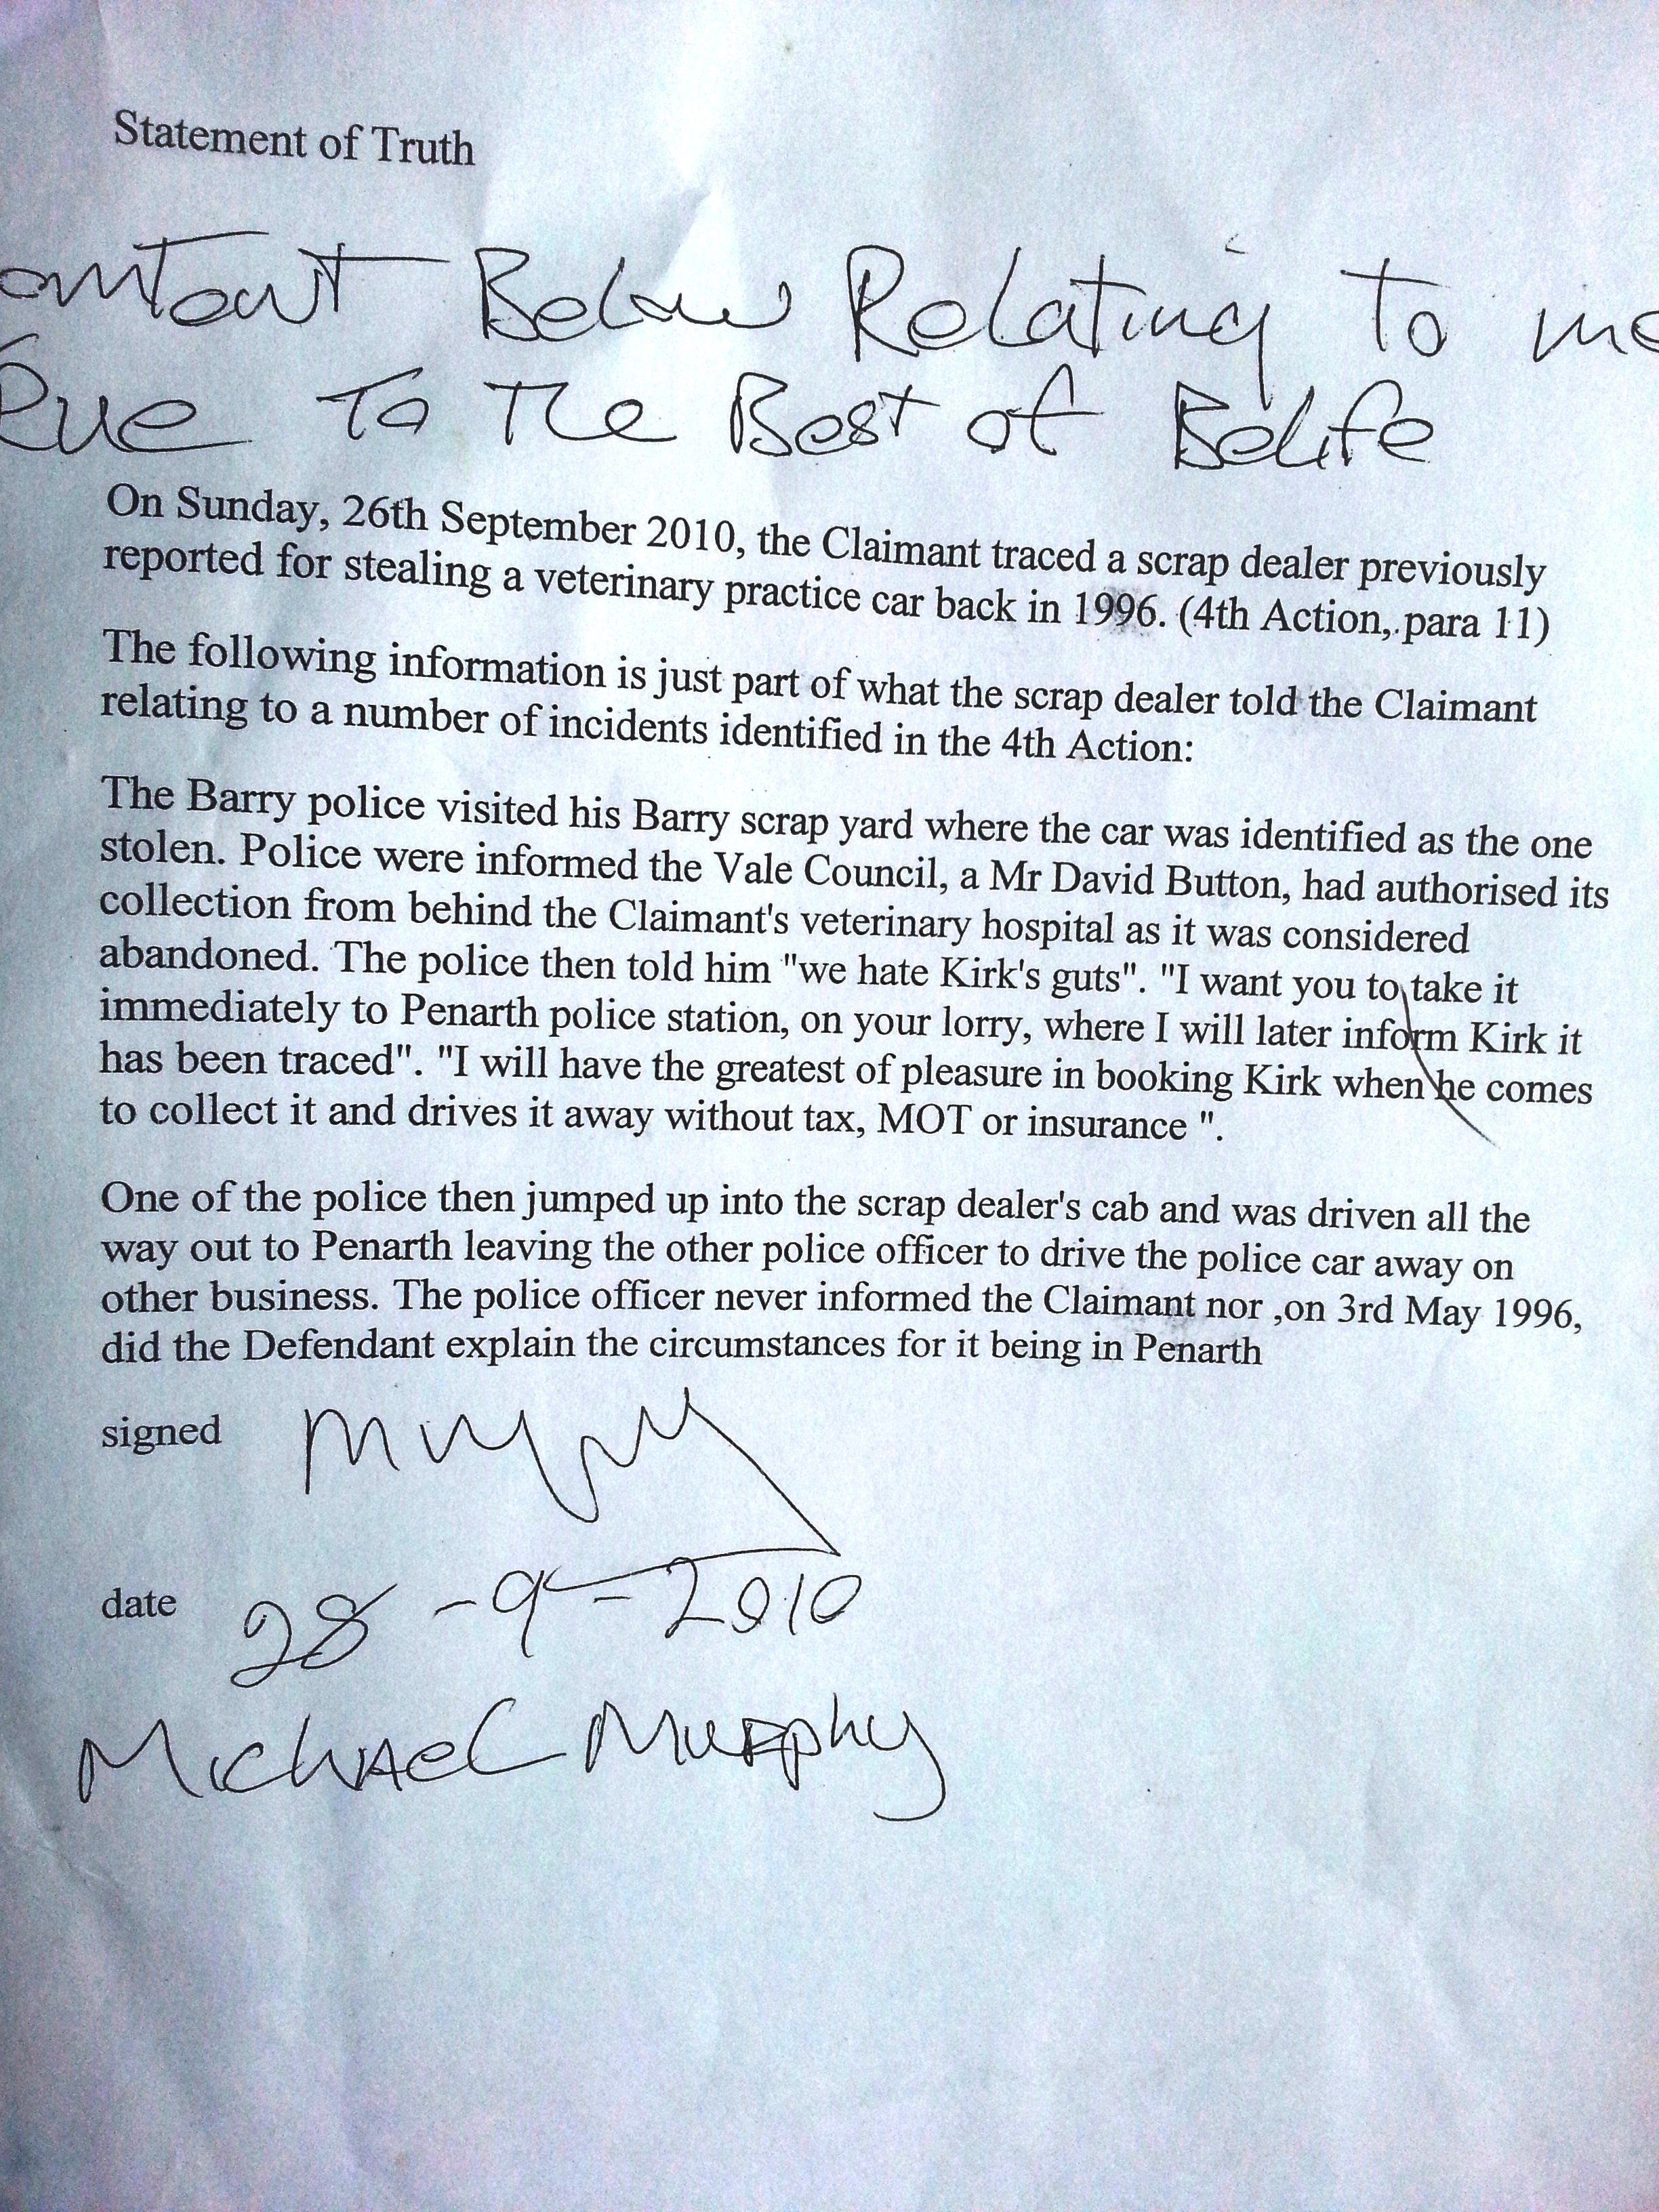 Statement of Truth
ontent Below Relating To me
Rue To The Best of Belife
On Sunday, 26th September 2010, the Claimant traced a scrap dealer previously
reported for stealing a veterinary practice car back in 1996. (4th Action, para 11)
The following information is just part of what the scrap dealer told the Claimant
relating to a number of incidents identified in the 4th Action:
The Barry police visited his Barry scrap yard where the car was identified as the one
stolen. Police were informed the Vale Council, a Mr David Button, had authorised its
collection from behind the Claimant's veterinary hospital as it was considered
abandoned. The police then told him "we hate Kirk's guts". "I want you to take it
immediately to Penarth police station, on your lorry, where I will later inform Kirk it
has been traced". "I will have the greatest of pleasure in booking Kirk when he comes
to collect it and drives it away without tax, MOT or insurance ".
One of the police then jumped up into the scrap dealer's cab and was driven all the
way out to Penarth leaving the other police officer to drive the police car away on
other business. The police officer never informed the Claimant nor ,on 3rd May 1996,
did the Defendant explain the circumstances for it being in Penarth
signed
date 28-9-2010
Michael Murphy